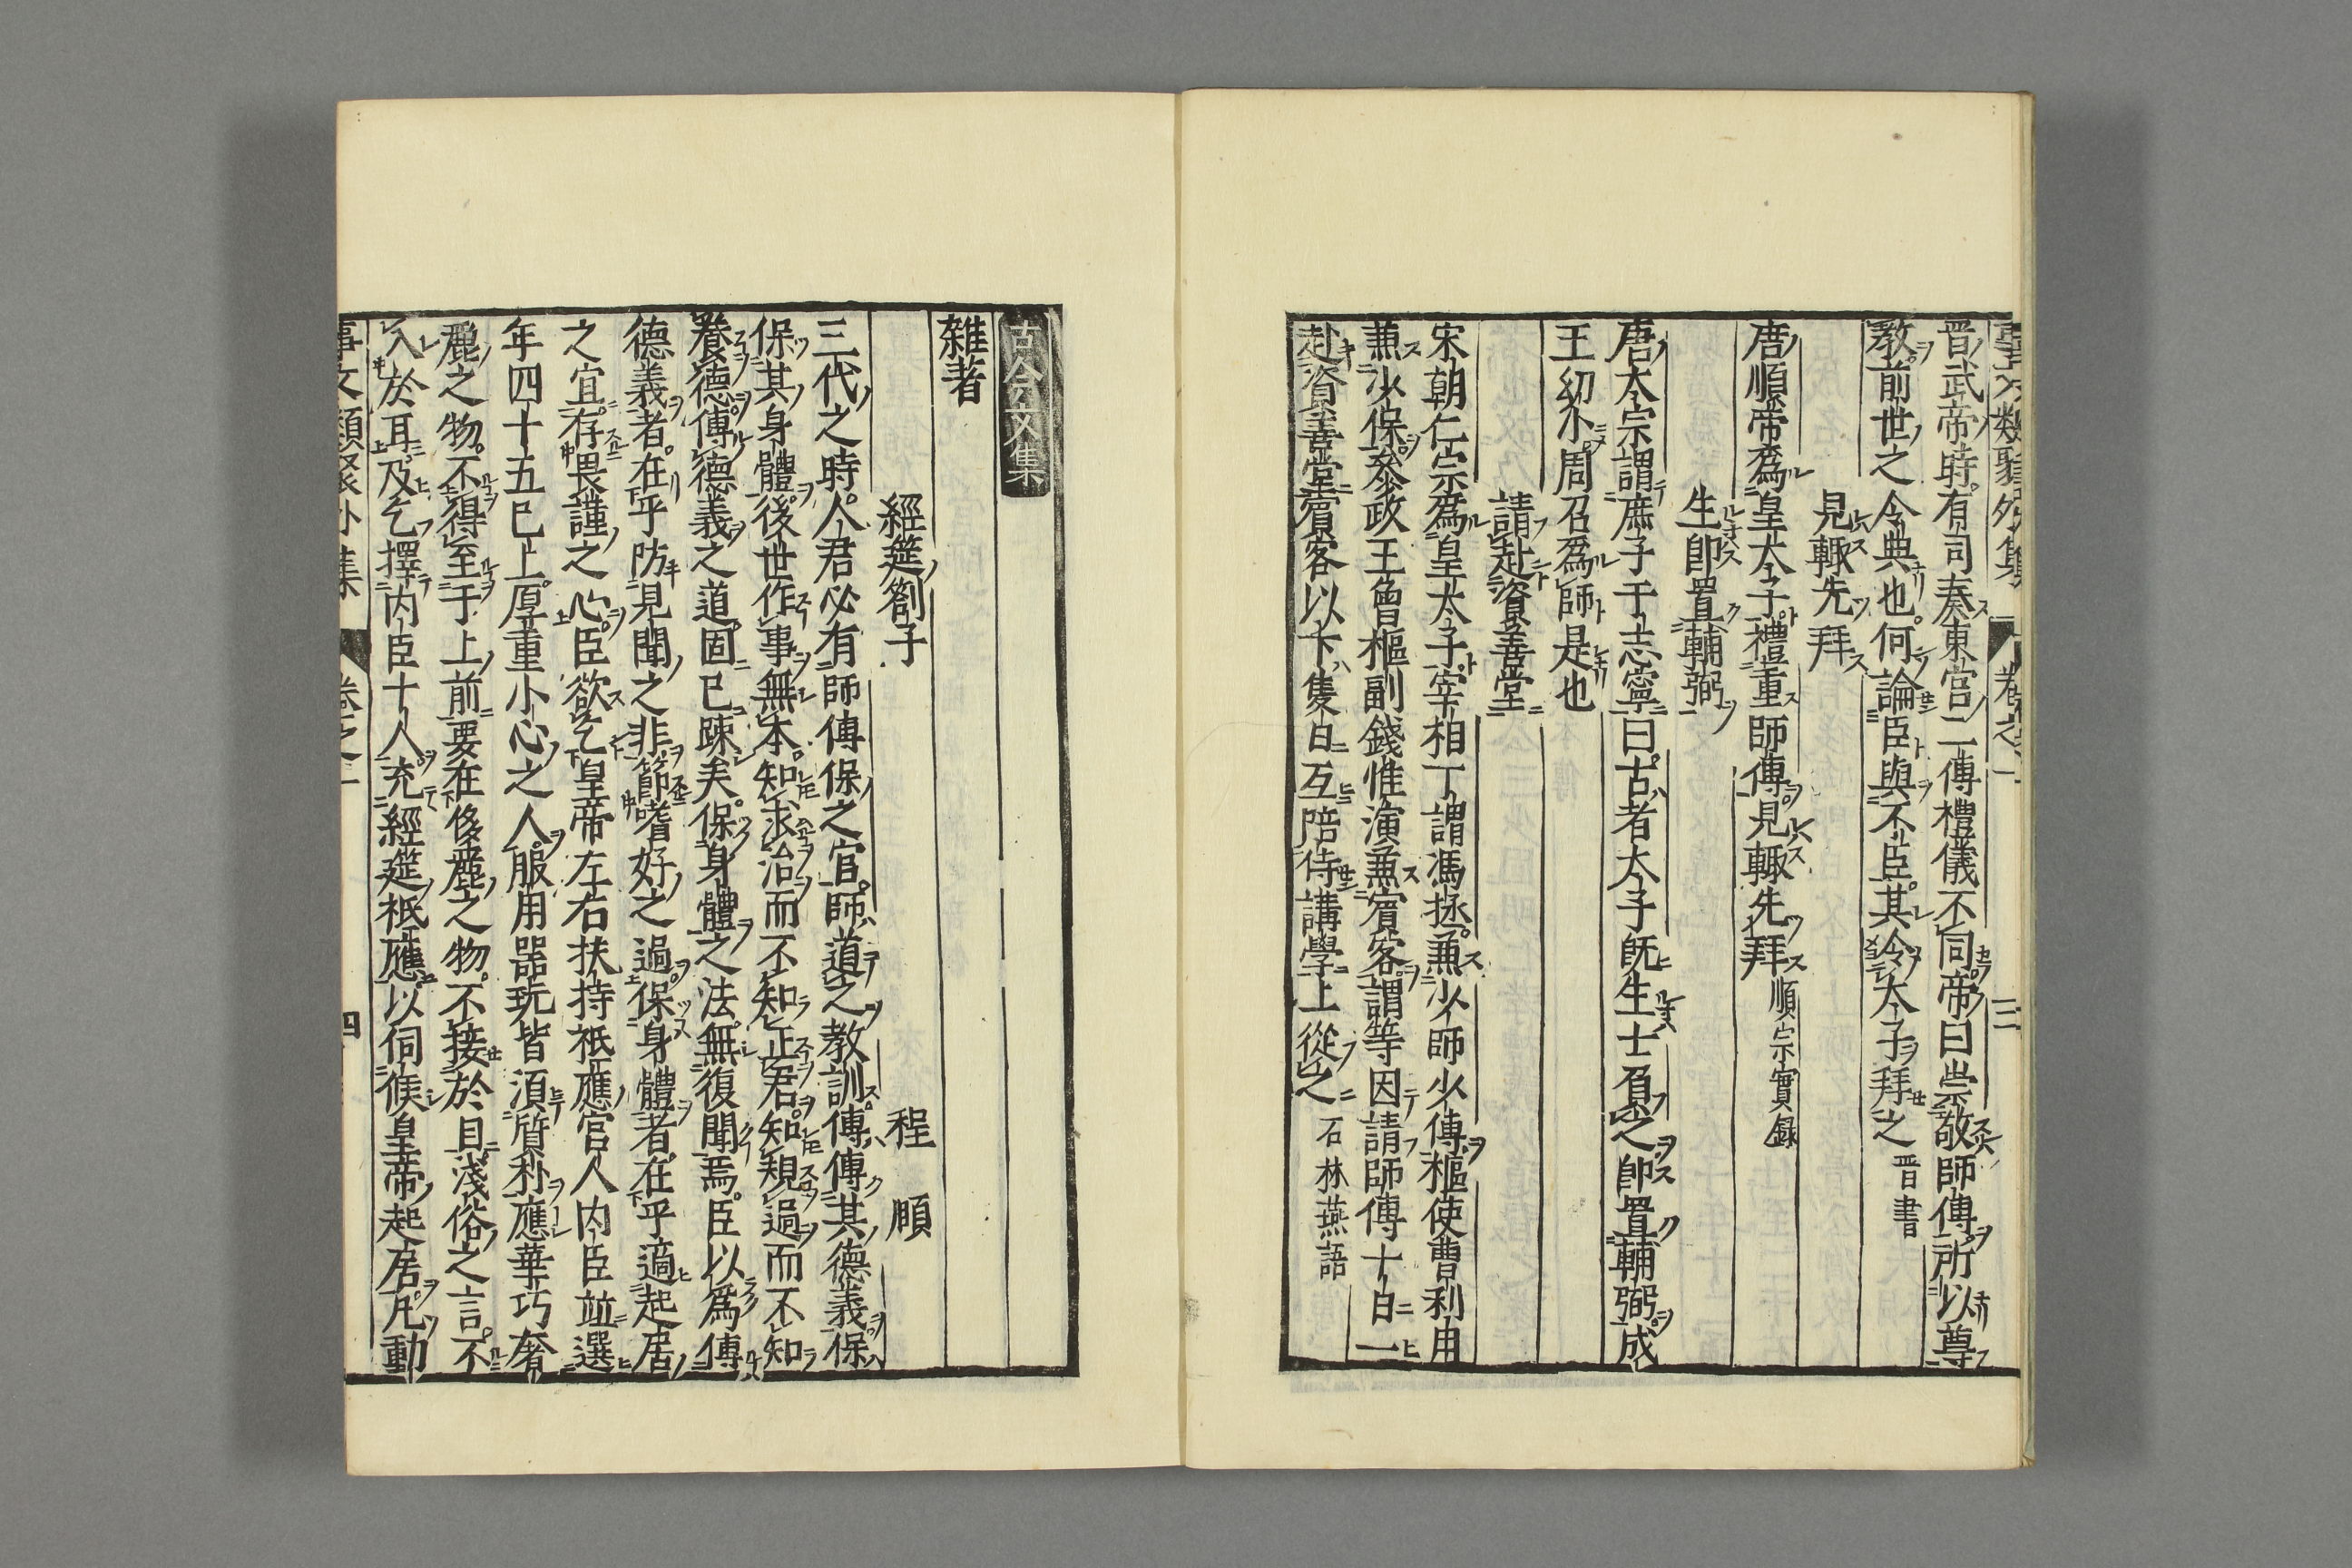 事文類聚外集 卷之一 三
晋武帝時有司奏東宮二傅禮儀不同帝曰崇敬師傅所以尊
教前世之令典也何論臣與不臣其令太子拜之 晋書
見輙先拜
唐順帝爲皇太子禮重師傅見輙先拜 順宗實録
生卽置輔弼
唐太宗謂庶子于志寧曰古者太子旣生士負之卽置輔弼成
王幼小周召爲師是也
請赴資善堂
宋朝仁宗爲皇太子宰相丁謂馮拯兼少師少傅樞使曹利用
兼少保參政王曾樞副錢惟演兼賓客謂等因請師傅十日一
赴資善堂賓客以下隻日互陪侍講學上從之 石林燕語
古今文集
雜著
經筵劄子 程 順
三代之時人君必有師傅保之官師道之教訓傅傅其德義保
保其身體後世作事無本知求治而不知正君知規過而不知
養德傅德義之道固已踈矣保身體之法無復聞焉臣以爲傅
德義者在乎防見聞之非節嗜好之過保身體者在乎適起居
之宜存畏謹之心臣欲乞皇帝左右扶持祗應宮人内臣竝選
年四十五已上厚重小心之人服用器玩皆須質朴應華巧奢
麗之物不得至于上前要在侈麗之物不接於目淺俗之言不
入於耳及乞擇内臣十人充經筵祗應以伺候皇帝起居凡動
事文類聚外集 卷之一 四